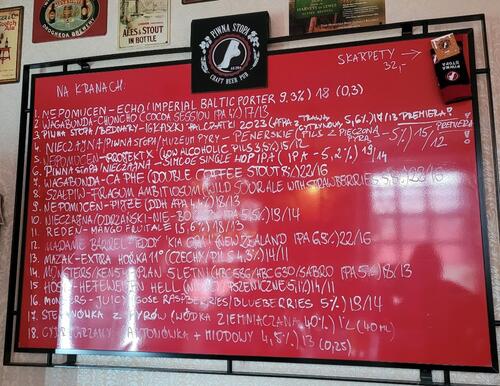 DROGHEDA BREWERY
ALES & STOUT
IN BOTTLE
HARVEY'S OF LEWES
PIWNA STOPA
CRAFT BEER PUB
PIWNA
STOPA
SKARPETY →
32,-
NA KRANACH:
1. NEPOMUCEN - ECHO (IMPERIAL BALTIC PORTER 9,3%) 18 (0,3)
2. WAGABUNDA - CHONCHO (COCOA SESSION IPA 4%) 17/13
3. PIWNA STOPA/BEDNARY - IGRASZKI PAŁECZATKI 2023 (APA z TRAWĄ CYTRYNOWĄ 5,6%) 14/13 PREMIERA!
4. NIECZAJNA/PIWNA STOPA/MUZEUM PYRY - PENERSKIE (PILS Z PIECZONĄ PYRĄ - 5%) 15/12 PREMIERA!
5. NEPOMUCEN - PROJEKTX (LOW ALCOHOLIC PILS 3,5%) 15/12
6. PIWNA STOPA/NIECZAJNA - SIMCOE SINGLE HOP IPA (IPA - 5,2%) 19/14
7. WAGABUNDA - CAPHE (DOUBLE COFFEE STOUT 8%) 22/16
8. SZAŁPIW - FRAGUM AMBITIOSUM (WILD SOUR ALE WITH STRAWBERRIES 5%) 22/16
9. NEPOMUCEN - PITZE (DDH APA 4,4%) 18/13
10. NIECZAJNA/ODRZAŃSKI - NIE-BO IPA 5,5%) 19/14
11. REDEN - MANGO FRUITALE (5,6%) 18/13
12. MADAME BARREL - TEDDY "KIA ORA" (NEW ZEALAND IPA 6,5%) 22/16
13. MAZÁK - EXTRA HOŘKÁ 11° (CZECH PILS 4,3%) 14/11
14. MONSTERS/ - 5 LETNI (HBC 586/HBC 630/SABRO IPA 5%) 18/13
15. - HEFEWEIZEN HELL ( PSZENICZNE 5,1%) 14/11
16. MONSTERS - JUICY GOSE RASPBERRIES/BLUEBERRIES 5%) 19/14
17. Z PYRÓW (WÓDKA ZIEMNIACZANA 40%) 12 (40 ml)
18. CYDR ANTONÓWKA + MIODOWY 4,5%) 13 (0,25)